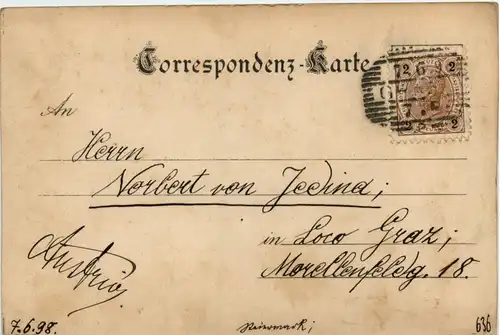 Correspondenz-Karte
2 2
2 2
An
Herrn
Norbert von Jedina;
in Loco Graz;
Morellenfeldg. 18.
Austria
7.6.98.
Steiermark
636